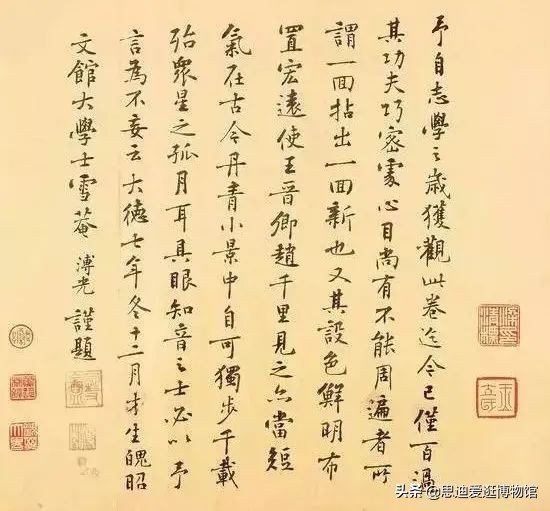 予自志學之歲獲觀此卷迄今已僅百過
其功夫巧密處心目尚有不能周遍者所
謂一面拈出一面新也又其設色鮮明布
置宏遠使王晉卿趙千里見之亦當短
氣在古今丹青小景中自可獨步千載
殆眾星之孤月耳具眼知音之士必以予
言為不妄云大德七年冬十二月才生魄昭
文館大學士雪菴溥光謹題
头条 @思迪爱逛博物馆